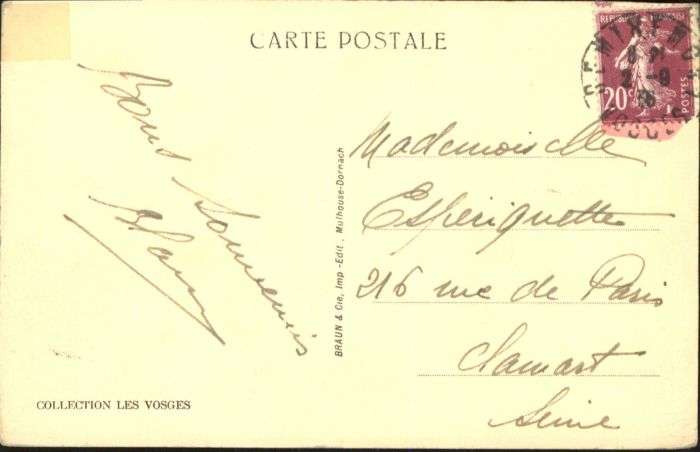 CARTE POSTALE
REPUBLIQUE FRANÇAISE
20c
POSTES
Bons Souvenirs
BRAUN & Cie, Imp.-Edit., Mulhouse-Dornach
Mademoiselle
Espériquette
216 rue de Paris
Clamart
Seine
COLLECTION LES VOSGES